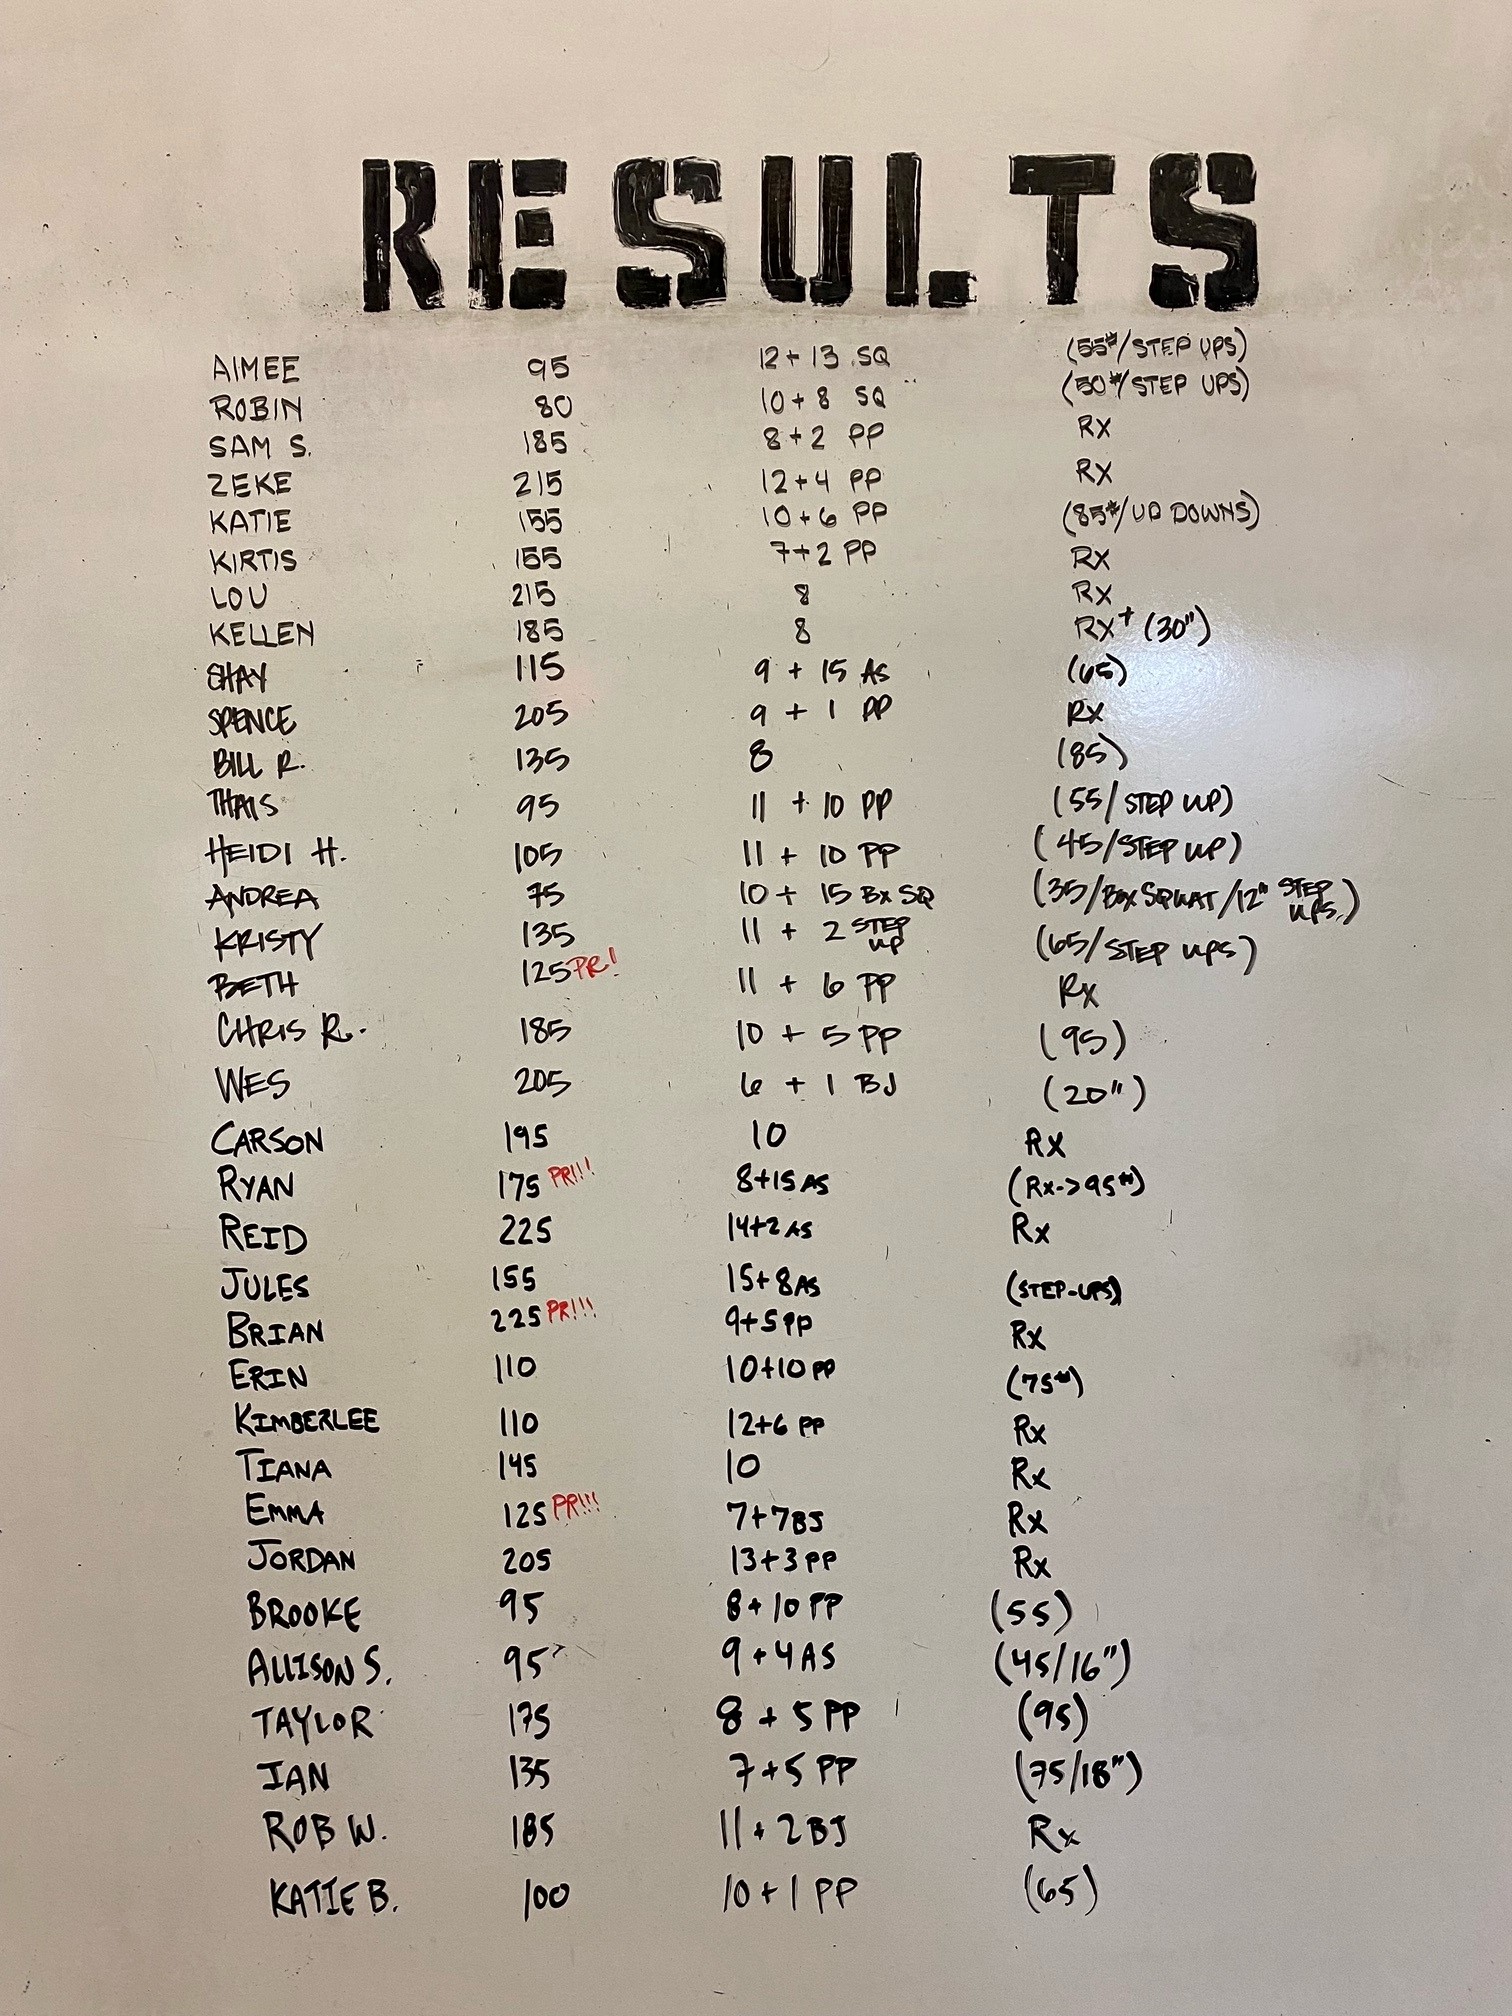 RESULTS
AIMEE 95 12+13 SQ (55#/STEP UPS)
ROBIN 80 10+8 SQ (50#/STEP UPS)
SAM S. 185 8+2 PP RX
ZEKE 215 12+4 PP RX
KATIE 155 10+6 PP (85#/UP DOWNS)
KIRTIS 155 7+2 PP RX
LOU 215 8 RX
KELLEN 185 8 RX+ (30")
SHAY 115 9 + 15 AS (65)
SPENCE 205 9 + 1 PP RX
BILL R. 135 8 (85)
THAIS 95 11 + 10 PP (55/STEP UP)
HEIDI H. 105 11 + 10 PP (45/STEP UP)
ANDREA 75 10 + 15 BX SQ (35/BOX SQUAT/12" STEP UPS)
KRISTY 135 11 + 2 STEP UP (65/STEP UPS)
BETH 125 PR! 11 + 6 PP RX
CHRIS R. 185 10 + 5 PP (95)
WES 205 6 + 1 BJ (20")
CARSON 195 10 RX
RYAN 175 PR!!! 8+15 AS (RX->95#)
REID 225 14+2 AS RX
JULES 155 15+8 AS (STEP-UPS)
BRIAN 225 PR!!! 9+5 PP RX
ERIN 110 10+10 PP (75#)
KIMBERLEE 110 12+6 PP RX
TIANA 145 10 RX
EMMA 125 PR!!! 7+7 BJ RX
JORDAN 205 13+3 PP RX
BROOKE 95 8+10 PP (55)
ALLISON S. 95 9+4 AS (45/16")
TAYLOR 175 8 + 5 PP (95)
IAN 135 7+5 PP (75/18")
ROB W. 185 11+2 BJ RX
KATIE B. 100 10+1 PP (65)